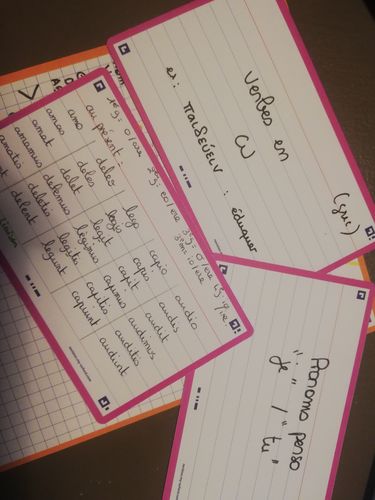 Verbes en
ω (grec)
ex: παιδεύειν : éduquer
au présent :
1°g= o/are
2°g= eo/ere
3°g= o/ere
3°m= io/ere
amo deleo lego capio audio
amas deles legis capis audis
amat delet legit capit audit
amamus delemus legimus capimus audimus
amatis deletis legitis capitis auditis
delent legunt capiunt audiunt
Pronoms perso
"je" / "tu"